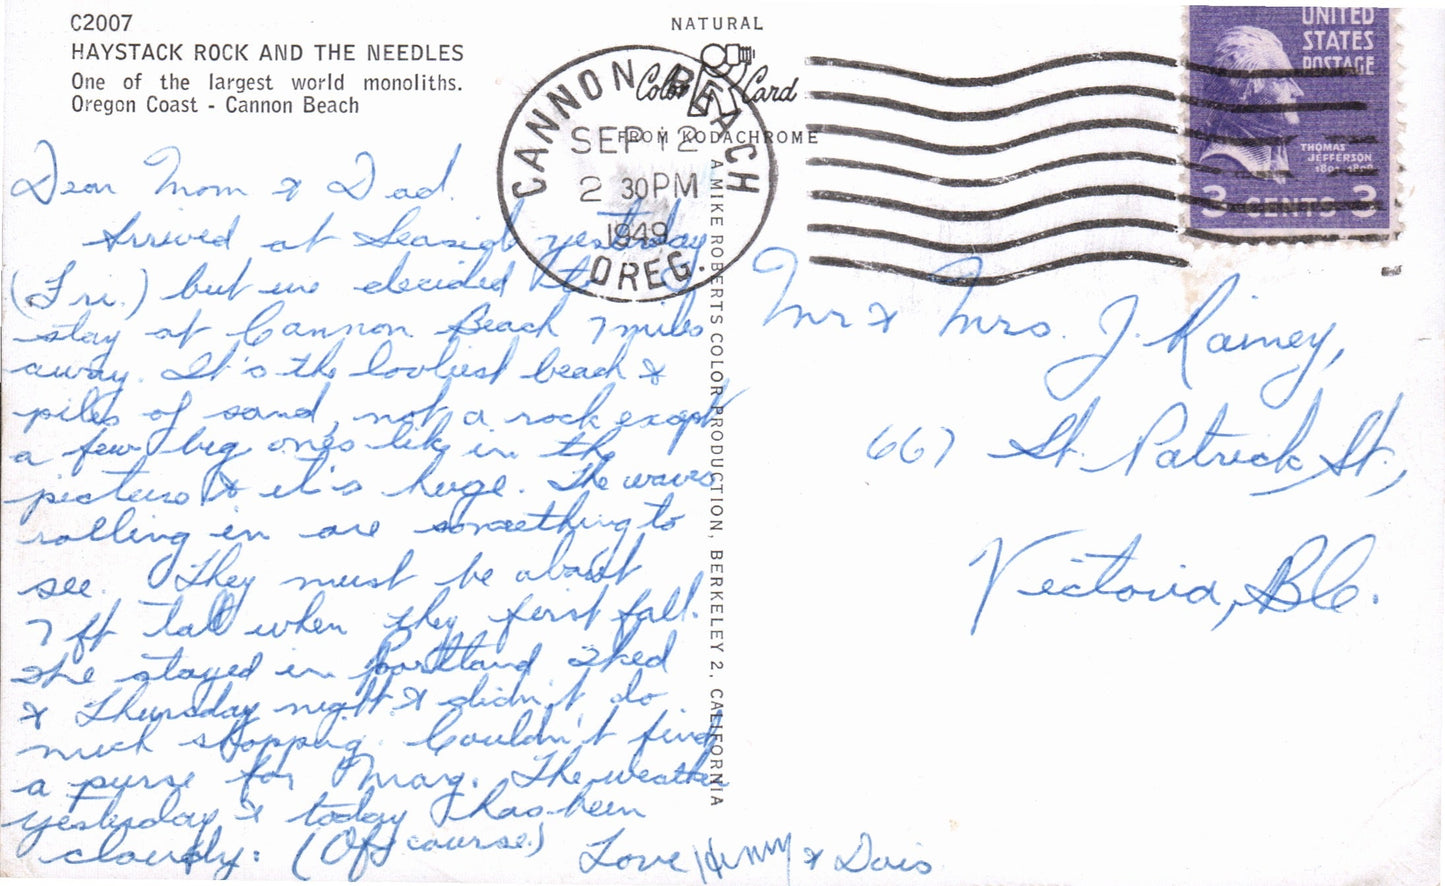 C2007
HAYSTACK ROCK AND THE NEEDLES
One of the largest world monoliths.
Oregon Coast - Cannon Beach
NATURAL
Color Card
FROM KODACHROME
CANNON BEACH
SEP 12
2 30PM
1949
OREG.
UNITED
STATES
POSTAGE
THOMAS
JEFFERSON
3 CENTS 3
A MIKE ROBERTS COLOR PRODUCTION, BERKELEY 2, CALIFORNIA
Dear Mom & Dad.
Arrived at Seaside yesterday
(Fri.) but we decided to
stay at Cannon Beach 7 miles
away. It's the lovliest beach &
piles of sand, not a rock except
a few big ones like in the
picture & it's huge. The waves
rolling in are something to
see. They must be about
7 ft tall when they first fall.
We stayed in Portland Wed
& Thursday night & didn't do
much shopping. Couldn't find
a purse for Marg. The weather
yesterday & today has been
cloudy. (Of course.)
Love, Henny & Dois
Mr & Mrs. J. Rainey,
667 St. Patrick St.,
Victoria, B.C.